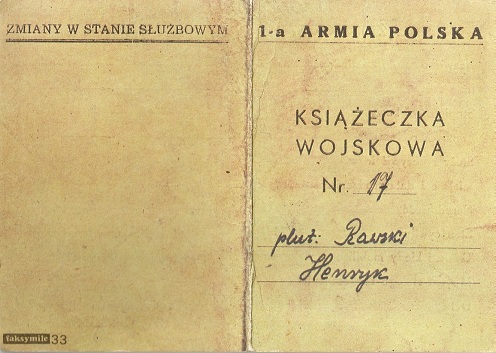 ZMIANY W STANIE SŁUŻBOWYM
faksymile 33
1-a ARMIA POLSKA
KSIĄŻECZKA
WOJSKOWA
Nr. 17
plut: Rawski
Henryk